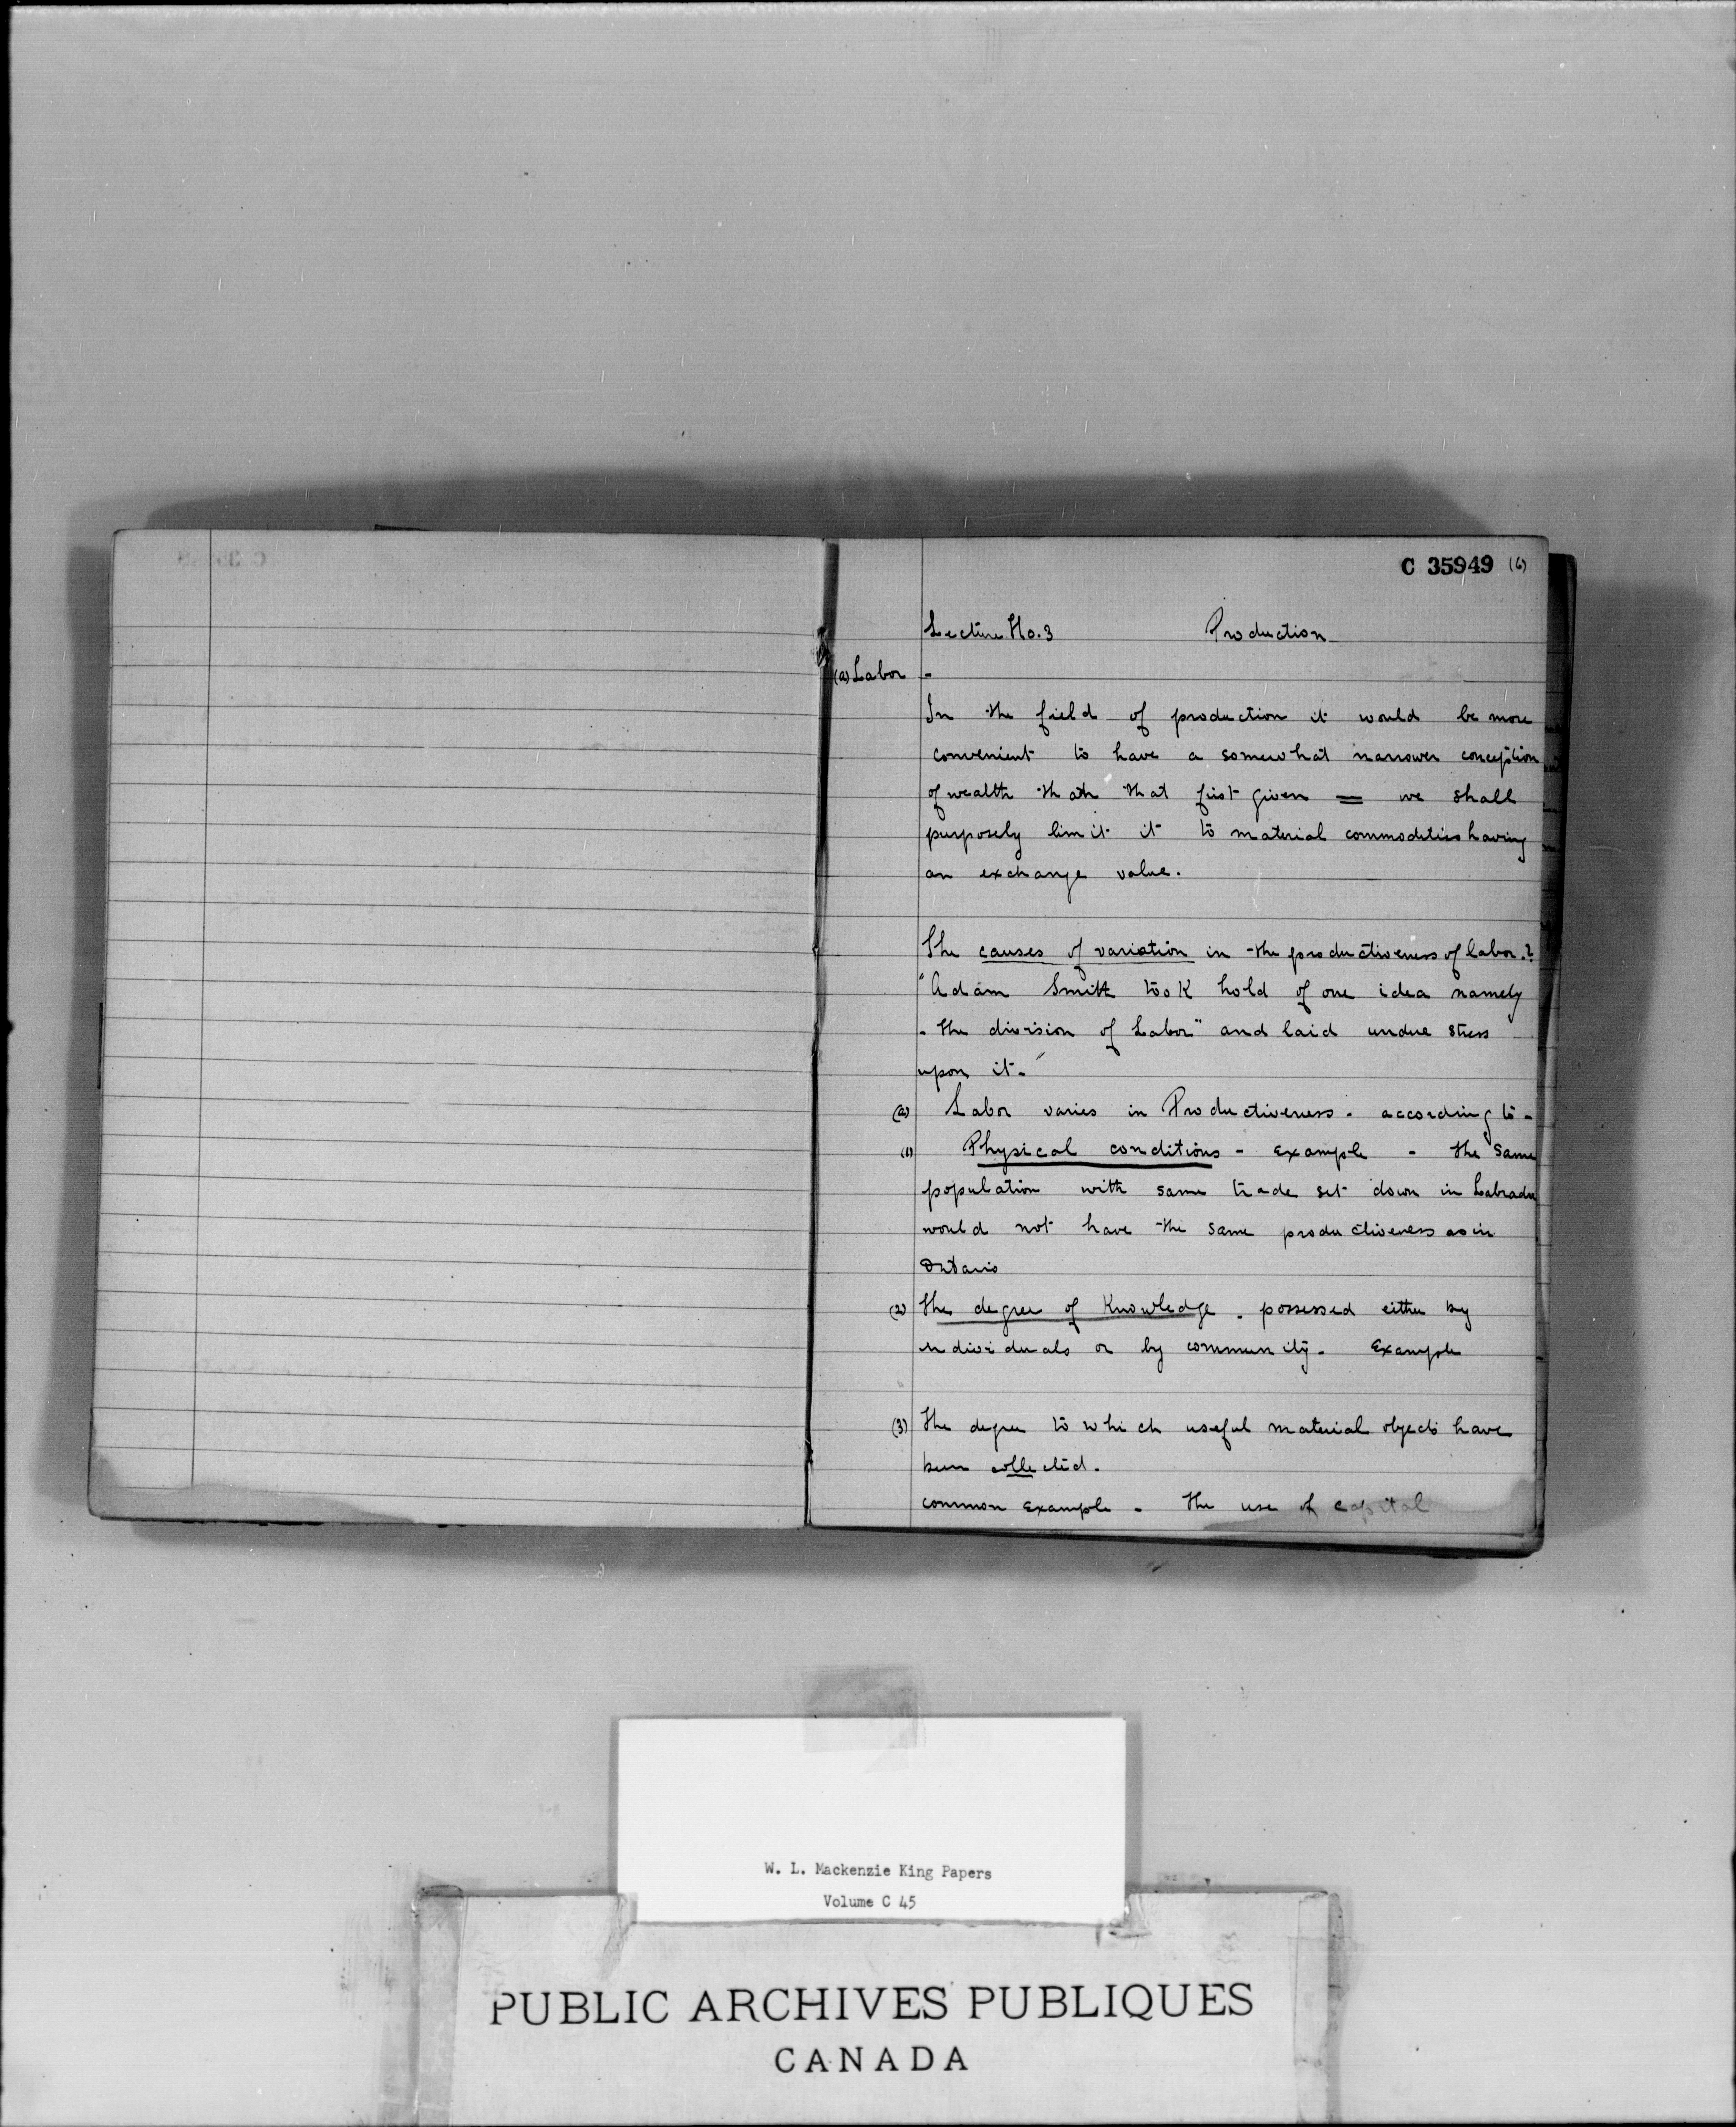 C 35949 (6)
Lecture No. 3 Production
(a) Labor -
In the field of production it would be more
convenient to have a somewhat narrower conception
of wealth than that first given = we shall
purposely limit it to material commodities having
an exchange value.
The causes of variation in the productiveness of labor.?
"Adam Smith took hold of one idea namely
- the division of Labor" and laid undue stress
upon it."
(a) Labor varies in Productiveness. according to -
(1) Physical conditions - Example - the same
population with same trade set down in Labrador
would not have the same productiveness as in
Ontario
(2) the degree of Knowledge. possessed either by
individuals or by community. Example
(3) the degree to which useful material objects have
been collected.
common Example - the use of capital
W. L. Mackenzie King Papers
Volume C 45
PUBLIC ARCHIVES PUBLIQUES
CANADA